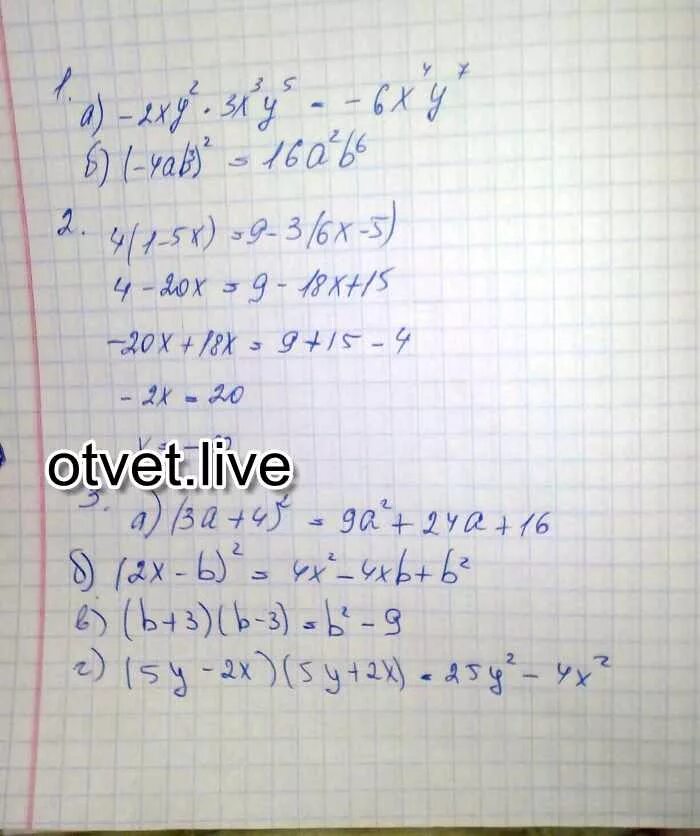 1.
а) -2xy² · 3x³y⁵ = -6x⁴y⁷
б) (-4ab³)² = 16a²b⁶
2.
4(1-5x) = 9-3(6x-5)
4 - 20x = 9 - 18x+15
-20x + 18x = 9 + 15 - 4
- 2x = 20
otvet.live
3.
а) (3a + 4)² = 9a² + 24a + 16
б) (2x - b)² = 4x² - 4xb + b²
в) (b+3)(b-3) = b² - 9
г) (5y - 2x)(5y+2x) = 25y² - 4x²